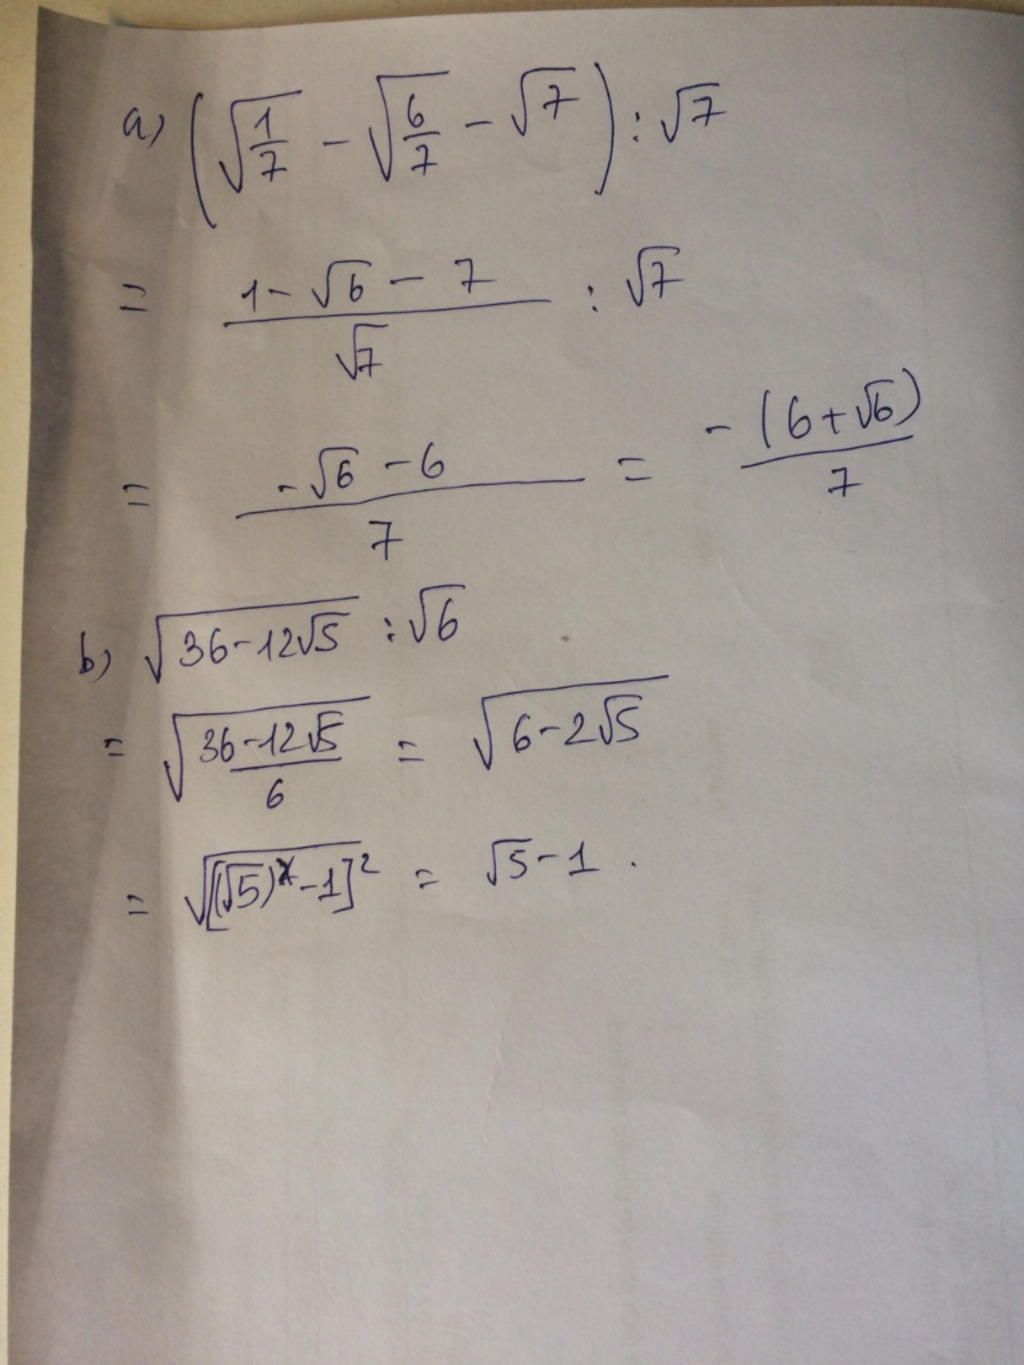 a) (√(1/7) - √(6/7) - √7) : √7
= (1 - √6 - 7)/√7 : √7
= (-√6 - 6)/7 = -(6 + √6)/7
b) √(36 - 12√5) : √6
= √((36 - 12√5)/6) = √(6 - 2√5)
= √([(√5) - 1]²) = √5 - 1 .